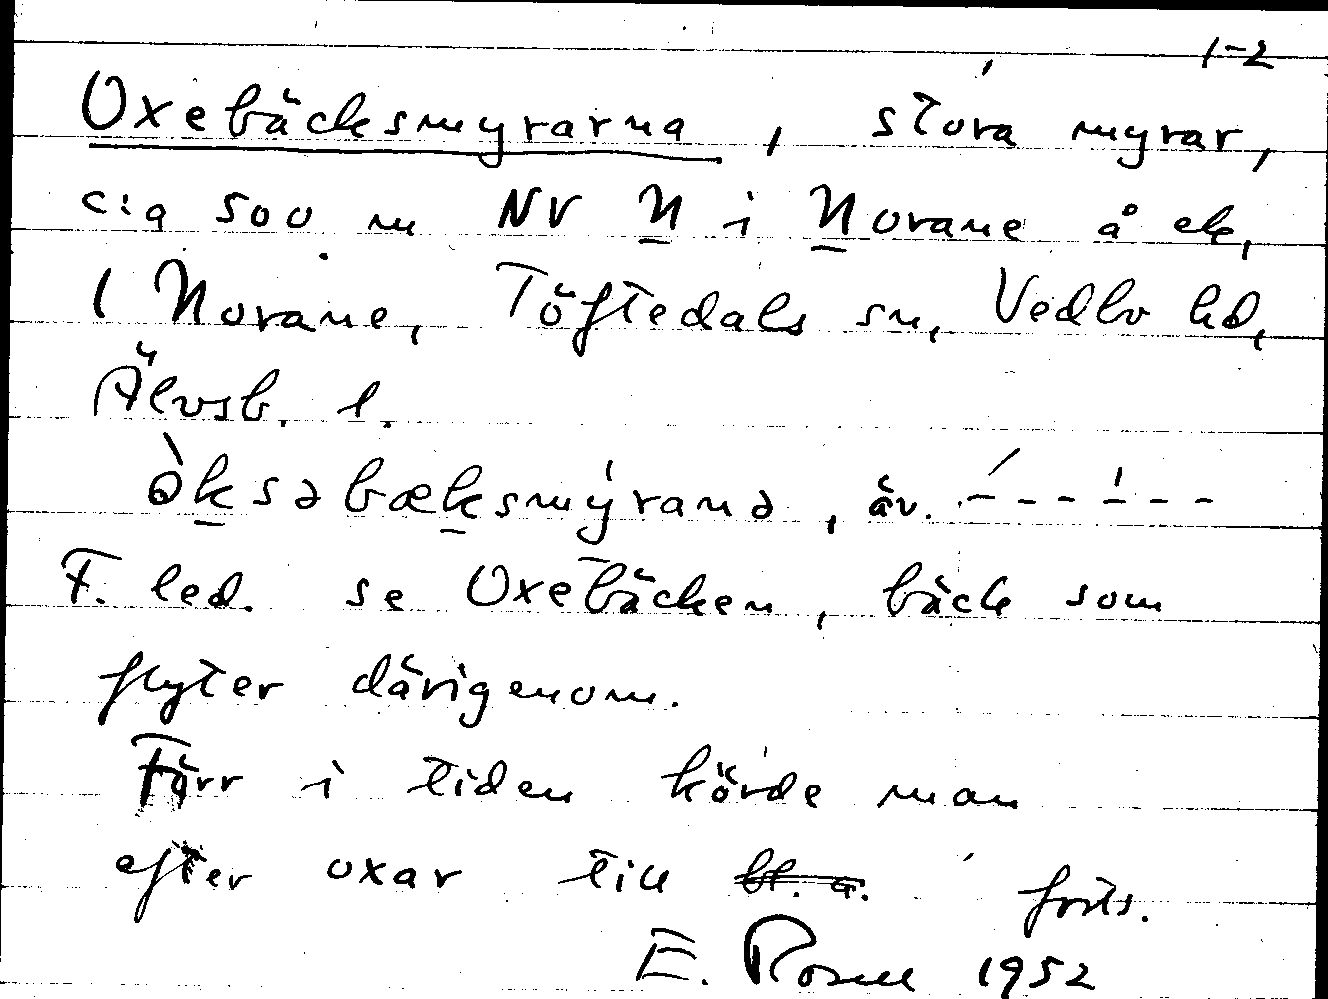 1-2
Oxebäcksmyrarna, stora myrar,
c:a 500 m NV N i Norane å ek.
( Norane, Töftedals sn, Vedbo hd,
Älvsb. l.
ò̀ksəbæksmýranə, äv. - - - - - - -
F. led. se Oxebäcken, bäck som
flyter därigenom.
Förr i tiden körde man
efter oxar till bl. a. forts.
E. Rosell 1952